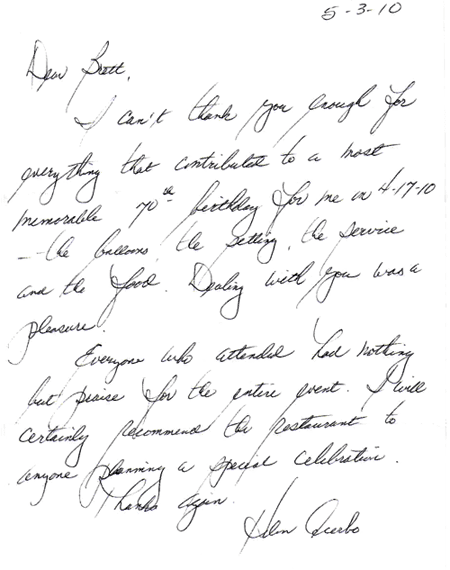 5-3-10
Dear Brett,
I can't thank you enough for
everything that contributed to a most
memorable 70th birthday for me on 4-17-10
-- the balloons, the setting, the service
and the food. Dealing with you was a
pleasure.
Everyone who attended had nothing
but praise for the entire event. I will
certainly recommend the restaurant to
anyone planning a special celebration.
Thanks again.
Helen